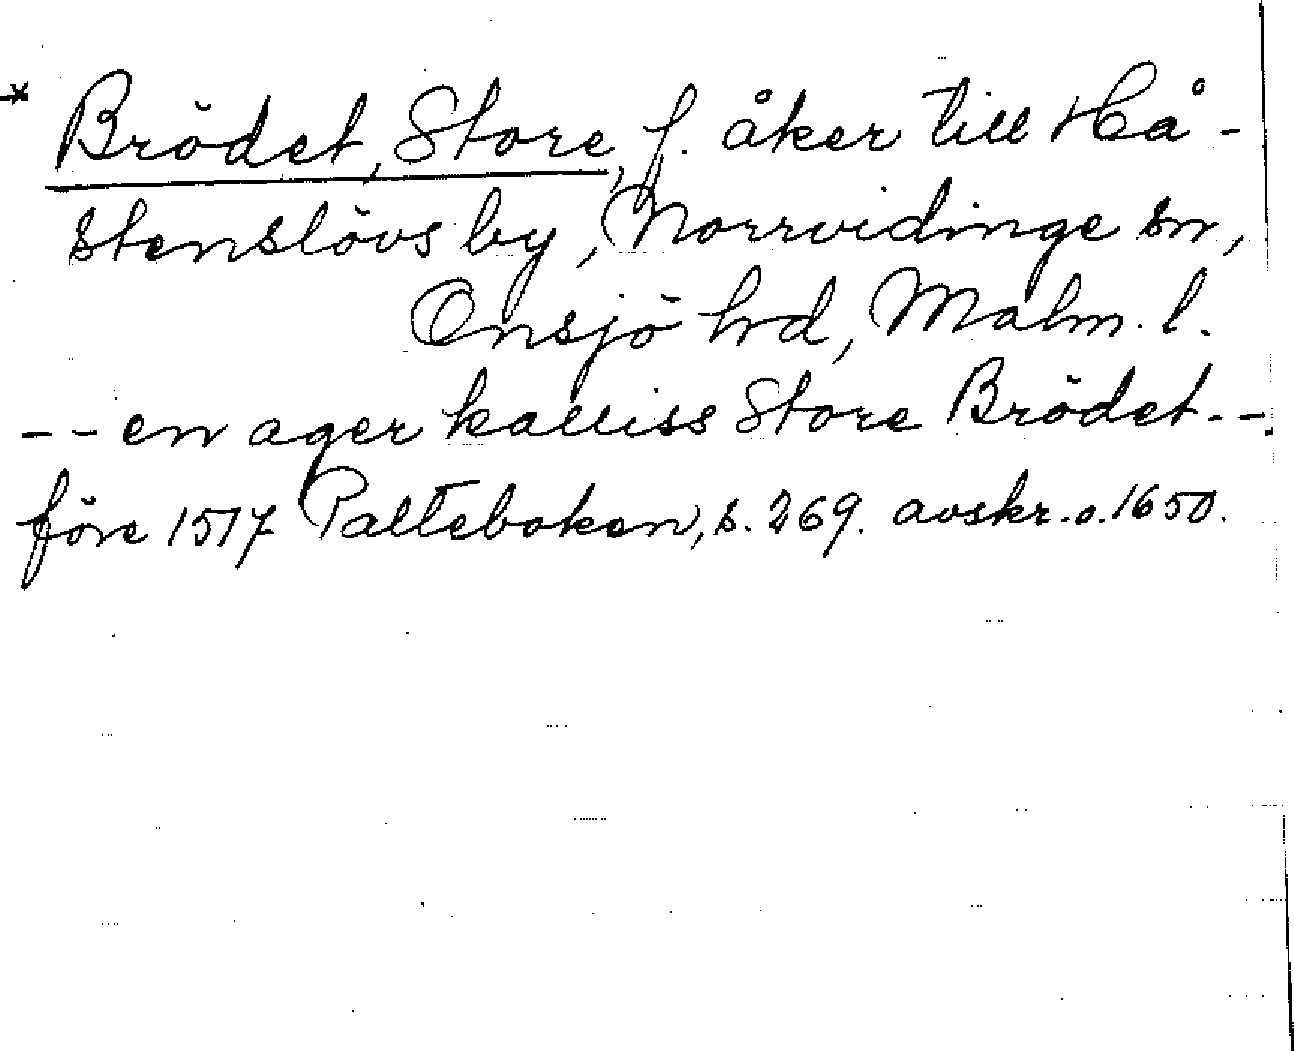 * Brödet, Store, f. åker till Hå-
stenslövs by, Norrvidinge sn,
Onsjö hd, Malm. l.
-- en ager kalliss Store Brödet --.
före 1517 Palteboken, s. 269. avskr. o. 1650.